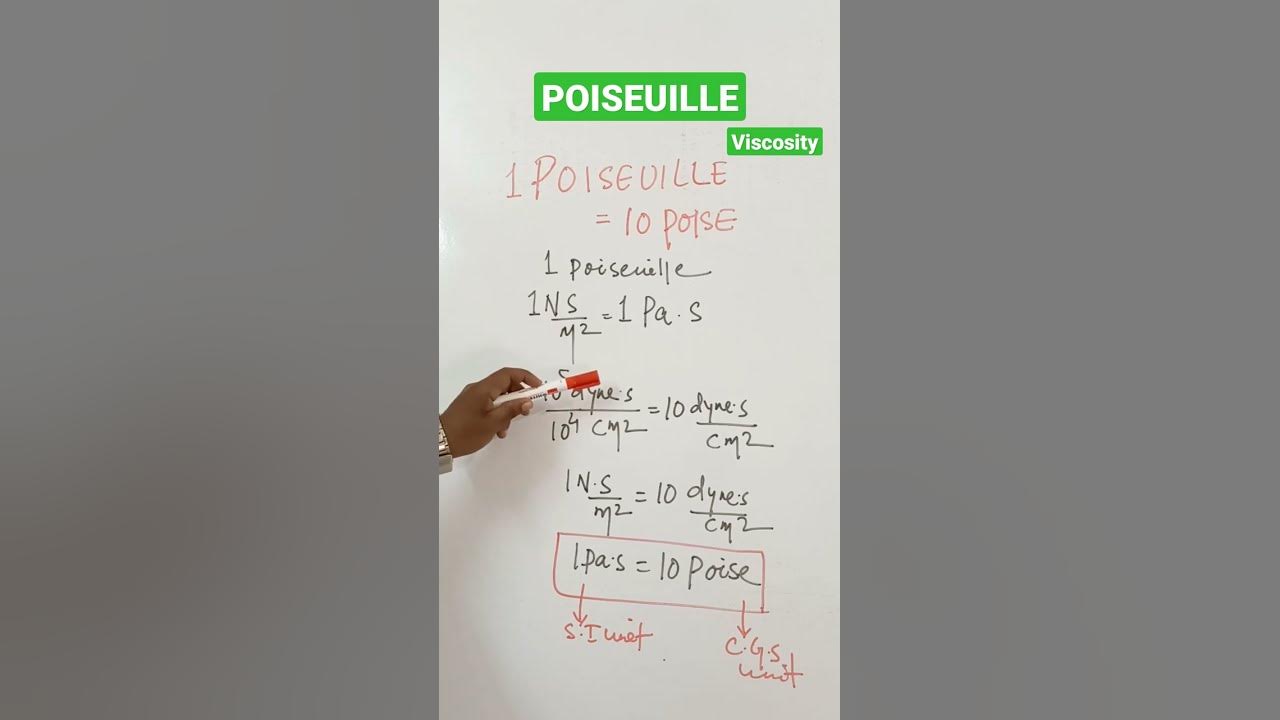 POISEUILLE
Viscosity
1 POISEUILLE
= 10 POISE
1 Poiseuille
1 N S / m² = 1 Pa . S
10⁵ dyne.s / 10⁴ cm² = 10 dyne.s / cm²
1 N.S / m² = 10 dyne.s / cm²
1 Pa.s = 10 Poise
S.I unit
C.G.S.
unit